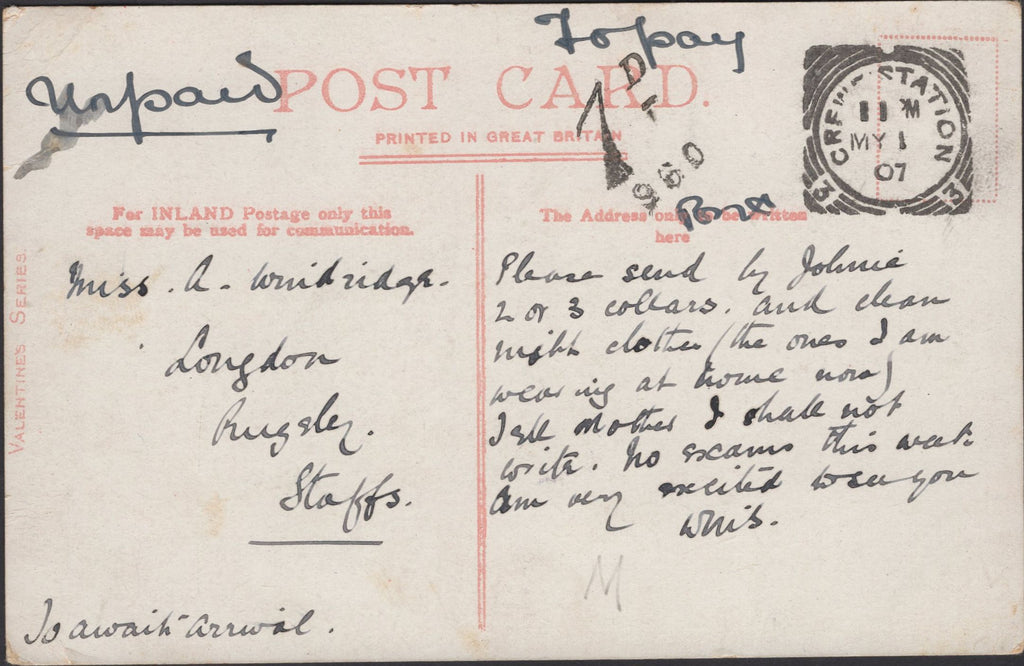 To pay
Unpaid
POST CARD.
PRINTED IN GREAT BRITAIN
1D
630
CREWE STATION
11 PM
MY 1
07
3 3
For INLAND Postage only this
space may be used for communication.
The Address only to be written
here
VALENTINE'S SERIES.
Miss. A. Windridge.
Longdon
Rugeley.
Staffs.
To await arrival.
Please send by Johnie
2 or 3 collars. and clean
night clothes (the ones I am
wearing at home now)
Tell Mother I shall not
write. No exams this week
Am very excited to see you
M